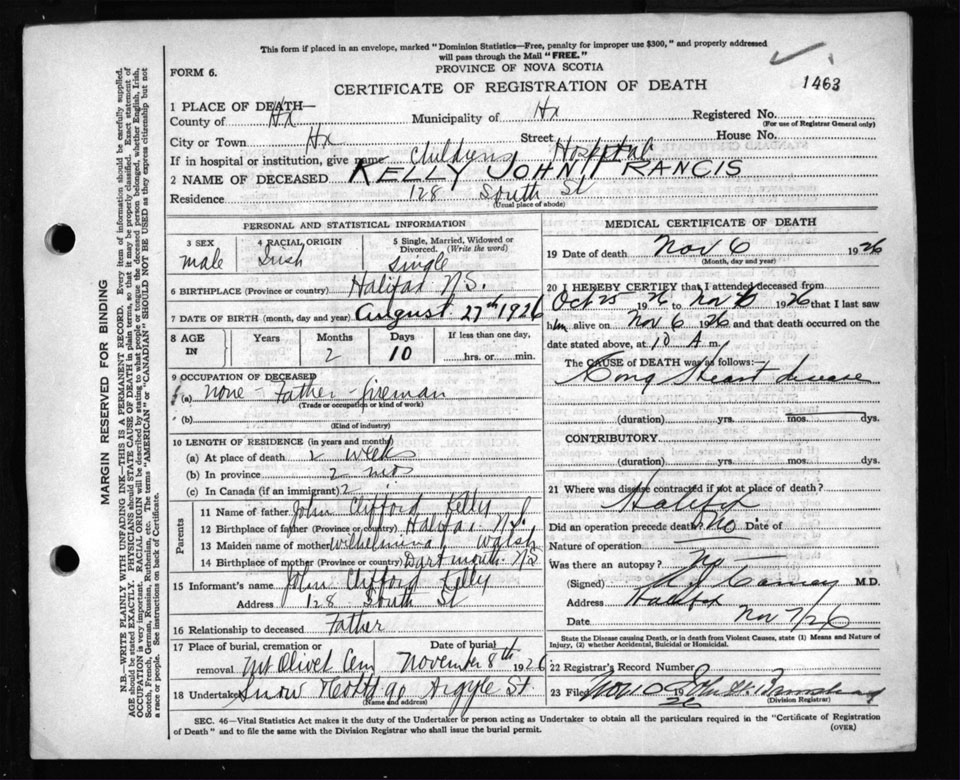 This form if placed in an envelope, marked "Dominion Statistics—Free, penalty for improper use $300," and properly addressed
will pass through the Mail "FREE."
PROVINCE OF NOVA SCOTIA
FORM 6.
CERTIFICATE OF REGISTRATION OF DEATH
1463
1 PLACE OF DEATH—
County of Hx Municipality of Hx Registered No.
(For use of Registrar General only)
City or Town Hx Street House No.
If in hospital or institution, give name Childrens Hospital
2 NAME OF DECEASED KELLY JOHN FRANCIS
Residence 128 South St
(Usual place of abode)
PERSONAL AND STATISTICAL INFORMATION
3 SEX 4 RACIAL ORIGIN 5 Single, Married, Widowed or Divorced. (Write the word)
male Irish single
6 BIRTHPLACE (Province or country) Halifax N.S.
7 DATE OF BIRTH (month, day and year) August 27th 1926
8 AGE IN Years Months Days If less than one day,
2 10 hrs. or min.
9 OCCUPATION OF DECEASED
(a) None - Father - fireman
(Trade or occupation or kind of work)
(b)
(Kind of industry)
10 LENGTH OF RESIDENCE (in years and months)
(a) At place of death 2 weeks
(b) In province 2 mos
(c) In Canada (if an immigrant) 2
Parents
11 Name of father John Clifford Kelly
12 Birthplace of father (Province or country) Halifax N.S.
13 Maiden name of mother Wilhelmina Walsh
14 Birthplace of mother (Province or country) Dartmouth N.S
15 Informant's name John Clifford Kelly
Address 128 South St
16 Relationship to deceased Father
17 Place of burial, cremation or removal Date of burial
Mt Olivet Cem November 8th 1926
18 Undertaker Snow Argyle St.
(Name and address)
MEDICAL CERTIFICATE OF DEATH
19 Date of death Nov 6 1926
(Month, day and year)
20 I HEREBY CERTIFY that I attended deceased from
Oct 25 1926 to Nov 6 1926 that I last saw
him alive on Nov 6 1926 and that death occurred on the
date stated above, at 10 A m.
The CAUSE OF DEATH was as follows:—
Cong Heart disease
(duration) yrs. mos. dys.
CONTRIBUTORY
(duration) yrs. mos. dys.
21 Where was disease contracted if not at place of death?
Halifax
Did an operation precede death? No Date of
Nature of operation
Was there an autopsy? No
(Signed) M.D.
Address Halifax
Date Nov 7/26
State the Disease causing Death, or in death from Violent Causes, state (1) Means and Nature of
Injury, (2) whether Accidental, Suicidal or Homicidal.
22 Registrar's Record Number
23 Filed Nov 1926
(Division Registrar)
SEC. 46—Vital Statistics Act makes it the duty of the Undertaker or person acting as Undertaker to obtain all the particulars required in the "Certificate of Registration
of Death" and to file the same with the Division Registrar who shall issue the burial permit.
(OVER)
MARGIN RESERVED FOR BINDING
N.B.—WRITE PLAINLY WITH UNFADING INK—THIS IS A PERMANENT RECORD. Every item of information should be carefully supplied.
AGE should be stated EXACTLY. PHYSICIANS should STATE CAUSE OF DEATH in plain terms, so that it may be properly classified. Exact statement of
OCCUPATION is very important. RACIAL ORIGIN will be described by stating to what people or tongue the deceased person belonged, whether English, Irish,
Scotch, French, German, Russian, Ruthenian, etc. The terms "AMERICAN" or "CANADIAN" SHOULD NOT BE USED as they express citizenship but not
a race or people. See instructions on back of Certificate.